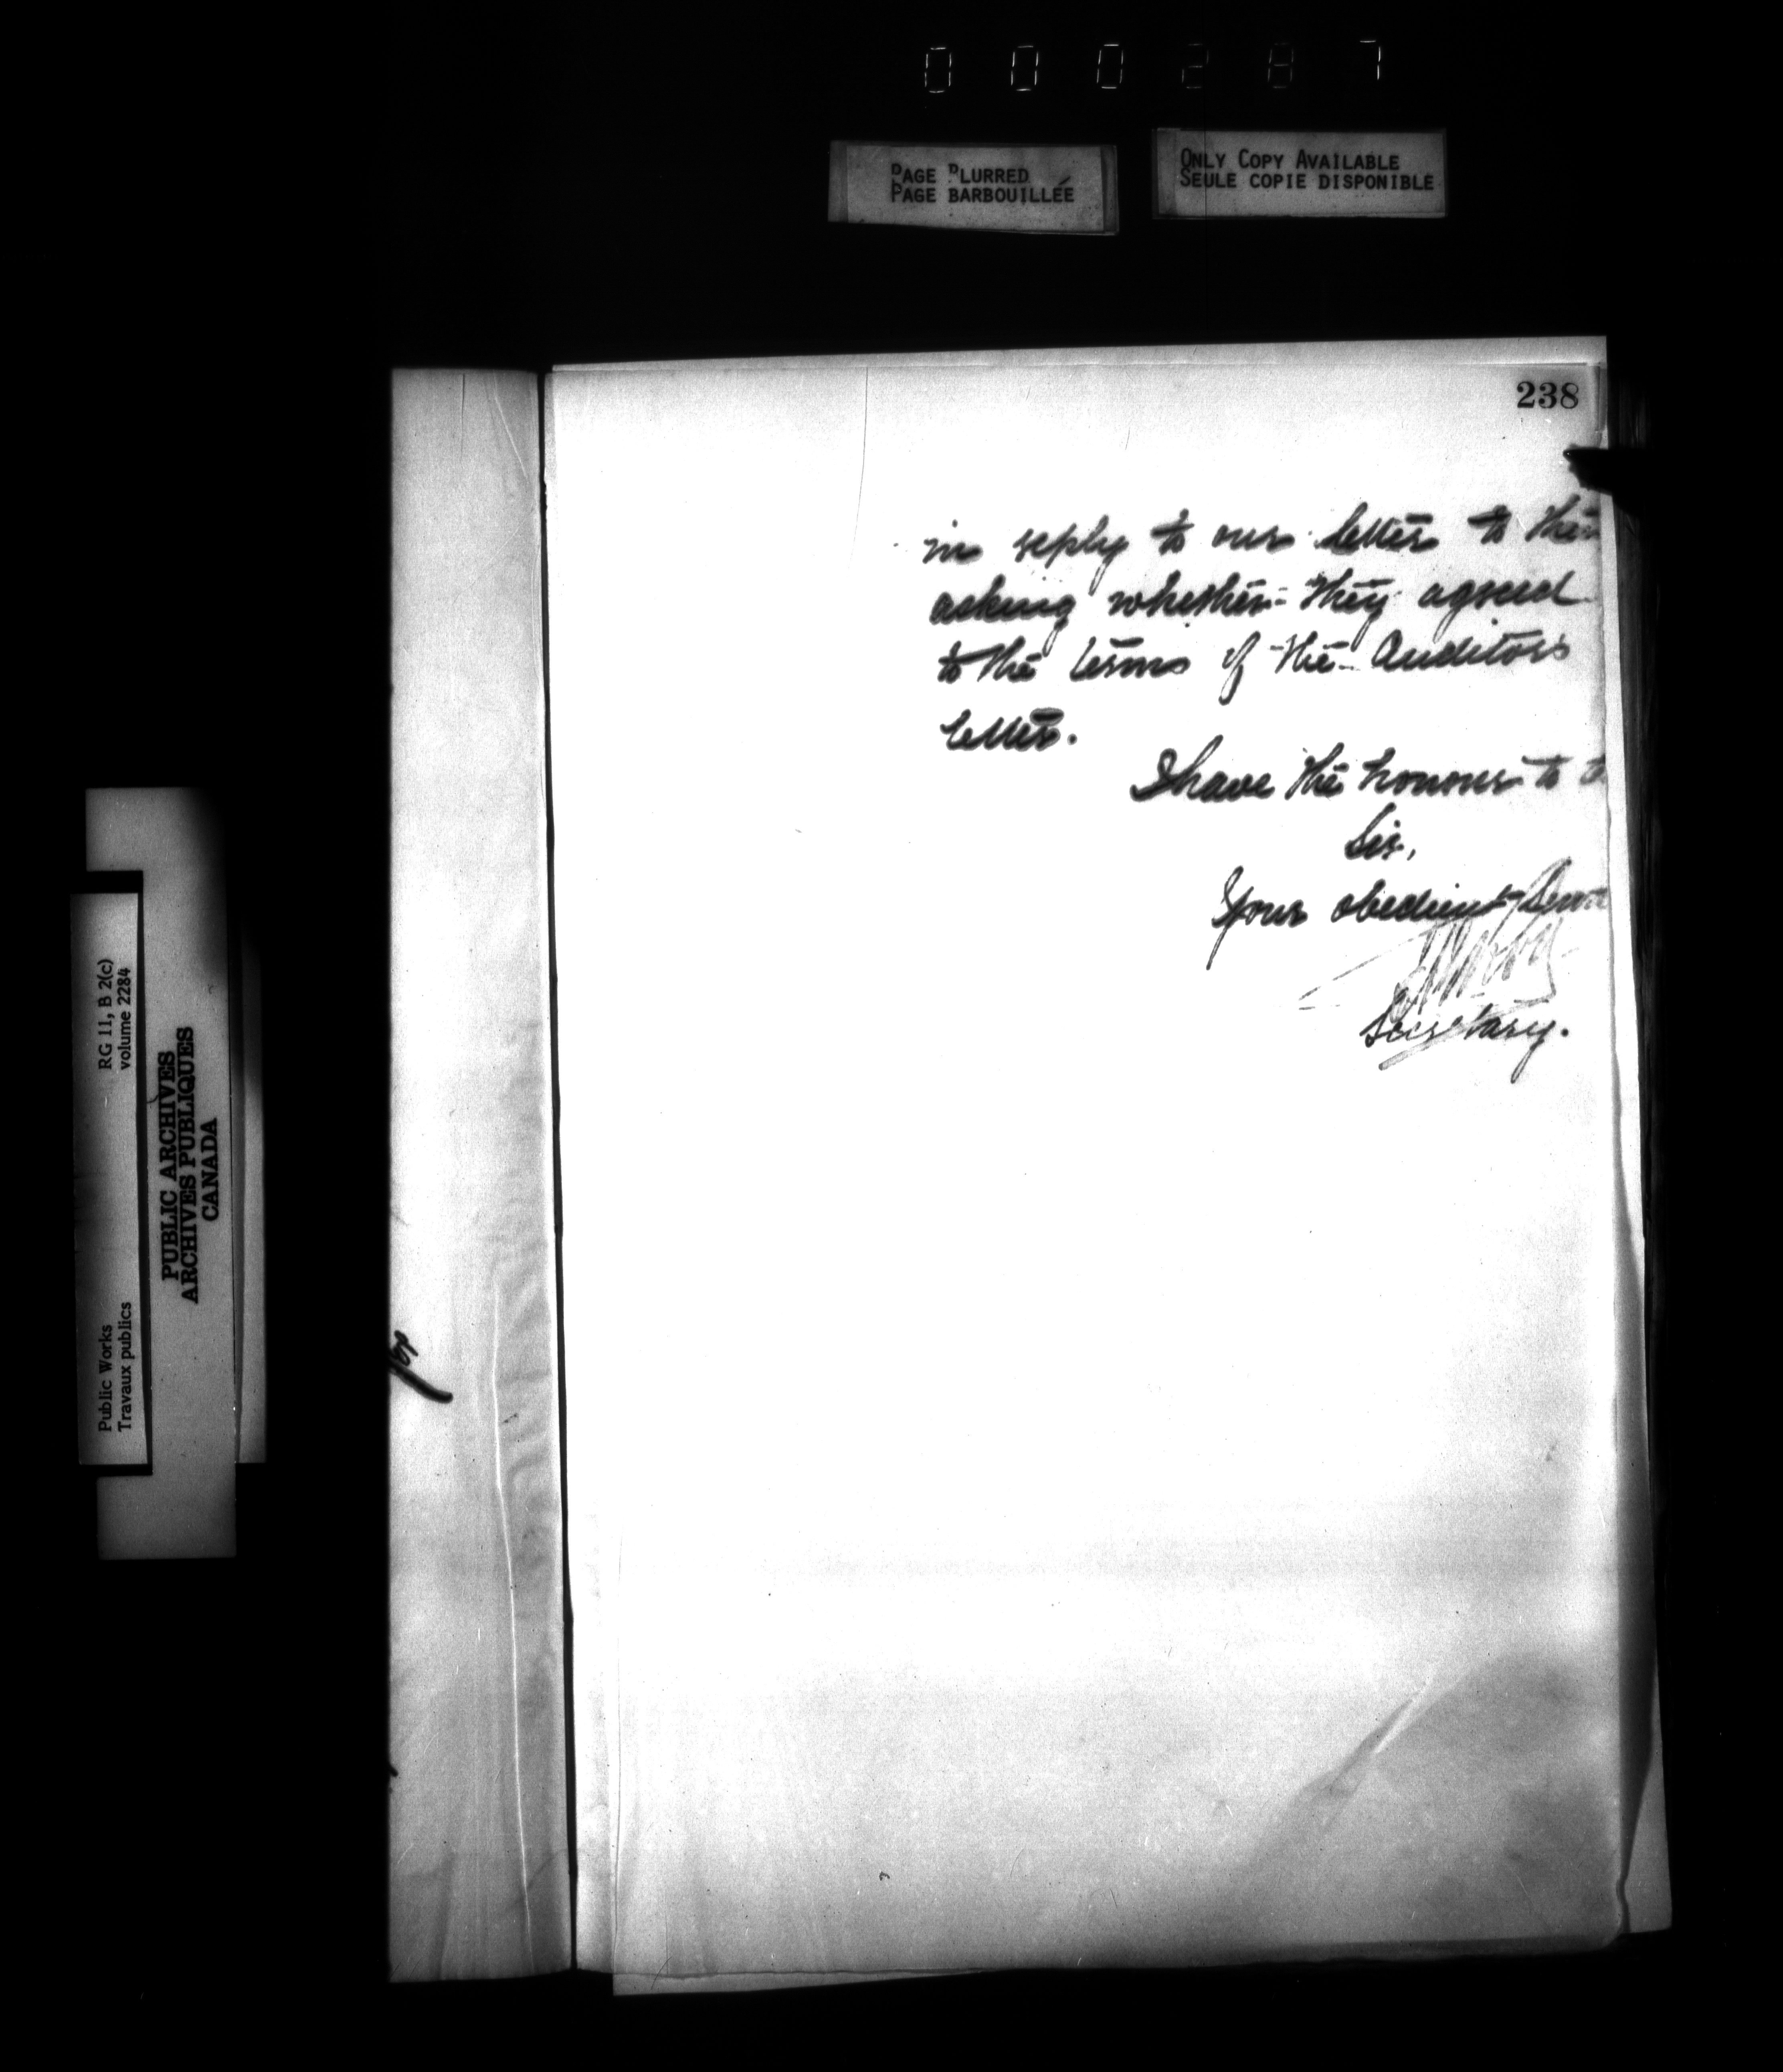 000287
PAGE BLURRED
PAGE BARBOUILLÉE
ONLY COPY AVAILABLE
SEULE COPIE DISPONIBLE
238
in reply to our letter to them
asking whether they agreed
to the terms of the Auditors
letter.
I have the honour to
Sir,
Your obedient Servt
Secretary.
RG 11, B 2(c)
volume 2284
Public Works
Travaux publics
PUBLIC ARCHIVES
ARCHIVES PUBLIQUES
CANADA